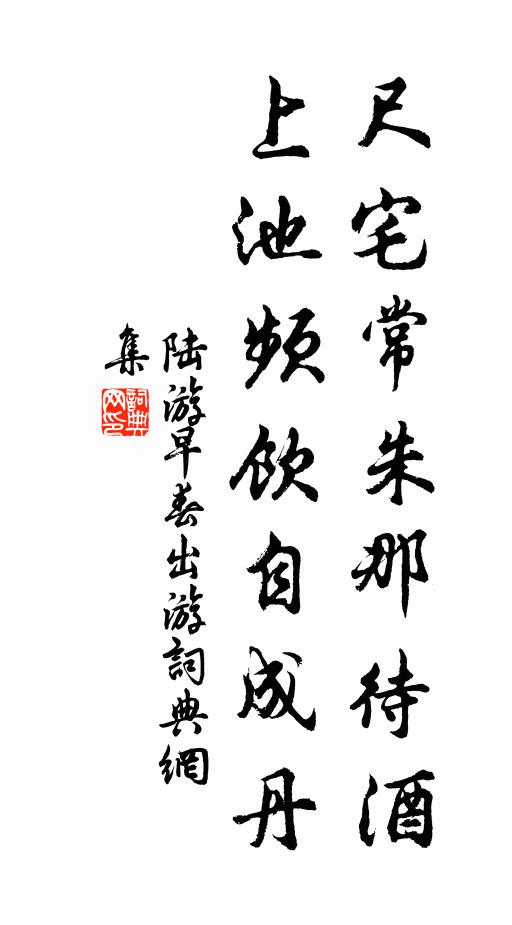 尺宅常朱那待酒
上池频饮自成丹
陆游早春出游詞典網
集
詞典
网印